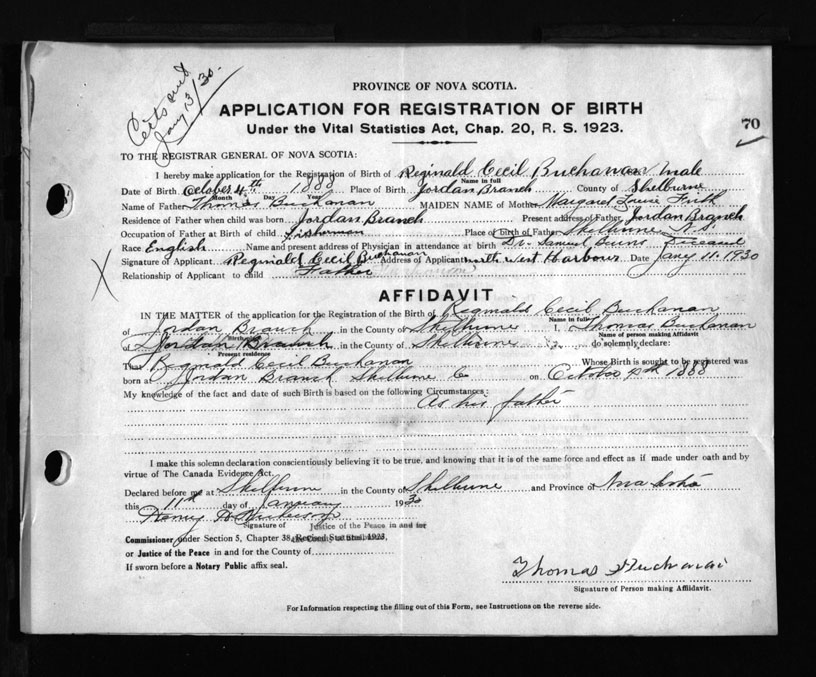 Certs sent
Jany 13/30.
PROVINCE OF NOVA SCOTIA.
APPLICATION FOR REGISTRATION OF BIRTH
70
Under the Vital Statistics Act, Chap. 20, R. S. 1923.
TO THE REGISTRAR GENERAL OF NOVA SCOTIA:
I hereby make application for the Registration of Birth of Reginald Cecil Buchanan male
Name in full
Date of Birth October 4th 1888 Place of Birth Jordan Branch County of Shelburne
Month Day Year
Name of Father Thomas Buchanan MAIDEN NAME of Mother Margaret Louise Firth
Residence of Father when child was born Jordan Branch Present address of Father Jordan Branch
Occupation of Father at Birth of child Fisherman Place of birth of Father Shelburne N.S.
Race English Name and present address of Physician in attendance at birth Dr. Samuel
Signature of Applicant Reginald Cecil Buchanan Address of Applicant North West Harbour Date Jany 11. 1930
Relationship of Applicant to child Father
AFFIDAVIT
IN THE MATTER of the application for the Registration of the Birth of Reginald Cecil Buchanan
Name in full
of Jordan Branch in the County of Shelburne I, Thomas Buchanan
Birthplace Name of person making Affidavit
of Jordan Branch in the County of Shelburne do solemnly declare:
Present residence
That Reginald Cecil Buchanan Whose Birth is sought to be registered was
born at Jordan Branch Shelburne Co on October 4th 1888
My knowledge of the fact and date of such Birth is based on the following Circumstances:
As his father
I make this solemn declaration conscientiously believing it to be true, and knowing that it is of the same force and effect as if made under oath and by
virtue of The Canada Evidence Act.
Declared before me at Shelburne in the County of Shelburne and Province of Nova Scotia
this 11th day of January 1930
Signature of Justice of the Peace in and for
Commissioner under Section 5, Chapter 38, Revised Statutes, 1923,
or Justice of the Peace in and for the County of
If sworn before a Notary Public affix seal.
Thomas Buchanan
Signature of Person making Affidavit.
For Information respecting the filling out of this Form, see Instructions on the reverse side.